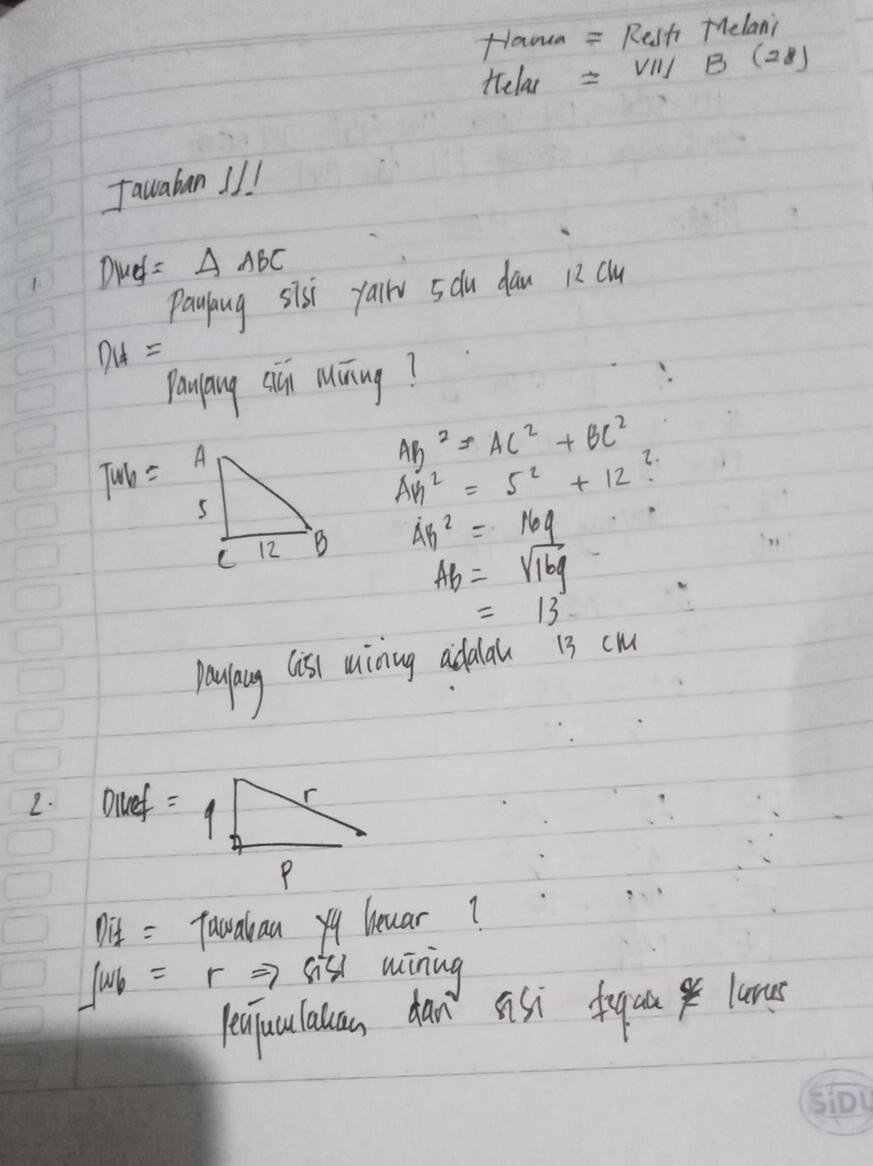 Nama = Resti Melani
Kelas = VIII B (28)
Jawaban !!!
1. Diket = Δ ABC
Panjang sisi yaitu 5 cm dan 12 cm
Dit =
Panjang sisi miring ?
Jwb = A
5
C 12 B
AB² = AC² + BC²
AB² = 5² + 12²
AB² = 169
AB = √169
= 13
Panjang sisi miring adalah 13 cm
2. Diket = q r
P
Dit = Jawaban yg benar ?
Jwb = r ⇒ sisi miring
Penjumlahan dari sisi tegak lurus
SiDU